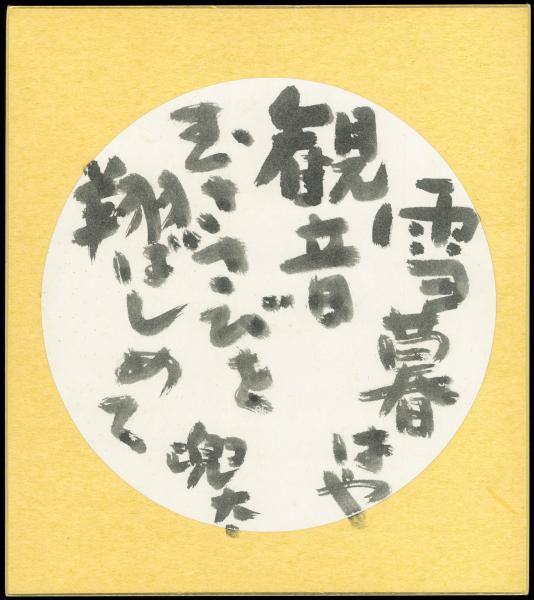 雪暮はや
観音
むささびを
翔ばしめて
兜太